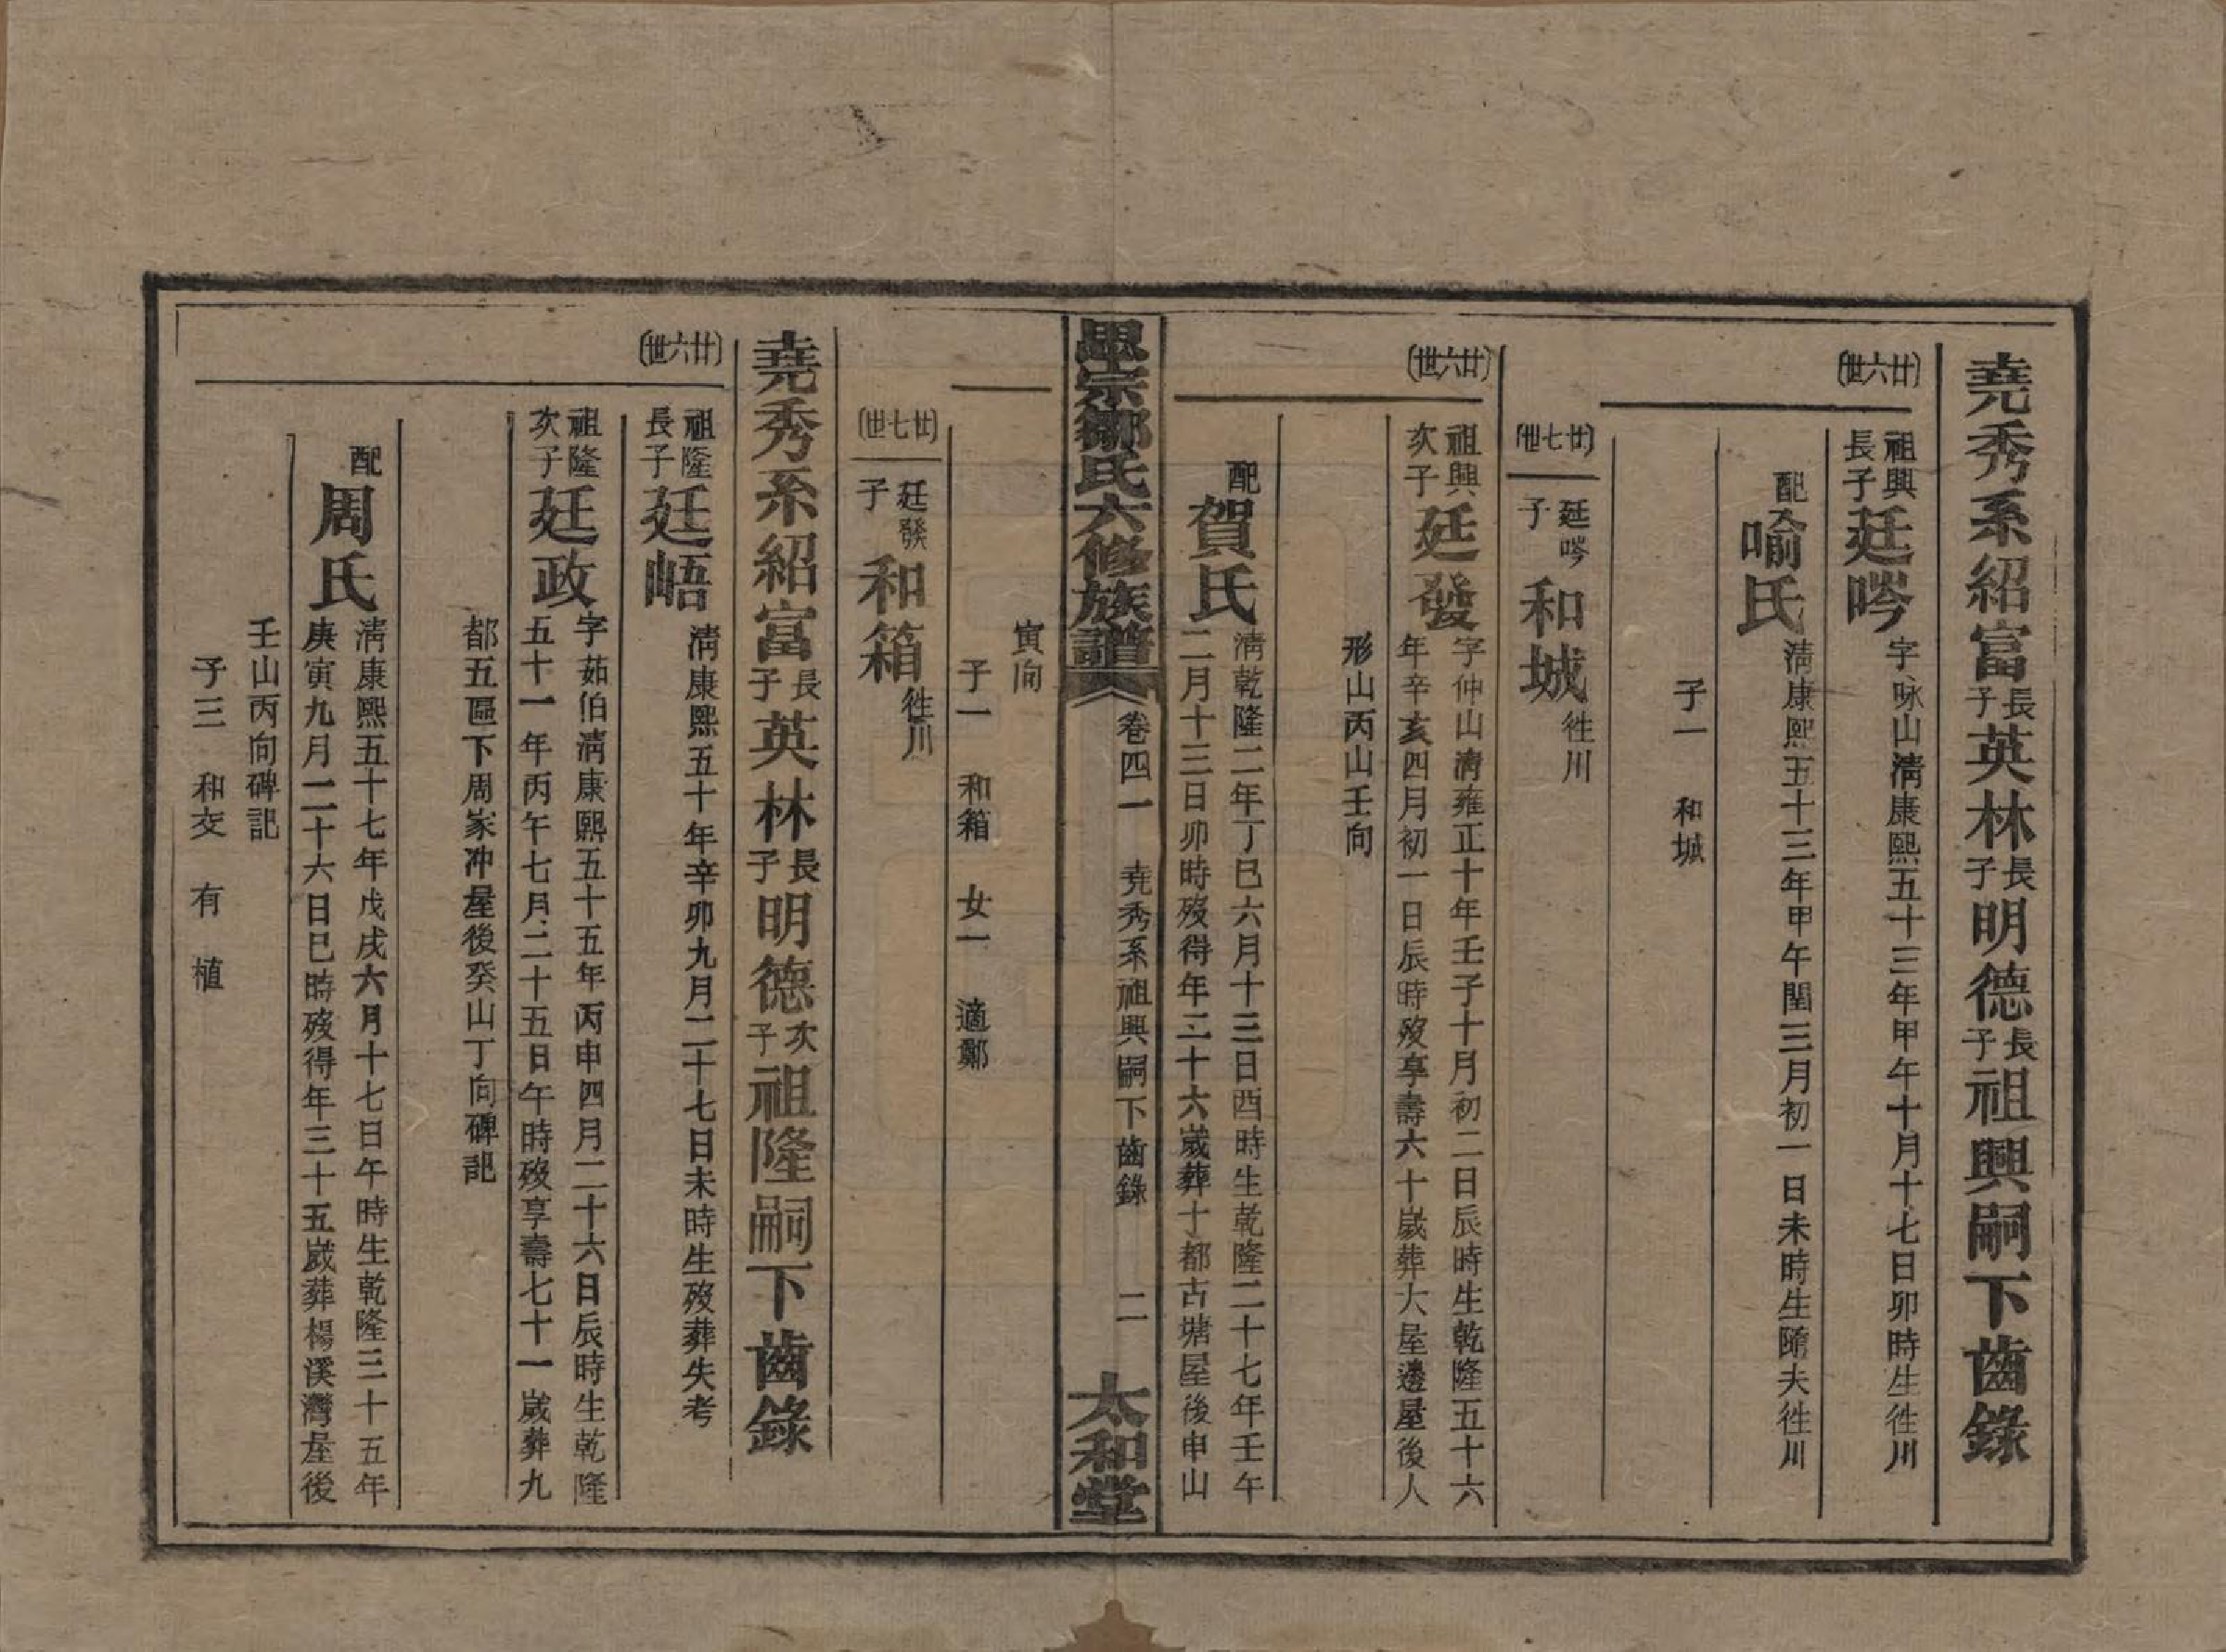 堯秀系紹富長子英林長子明德長子祖興嗣下齒錄
(廿六世)
祖興長子廷哗字咏山淸康熙五十三年甲午十月十七日卯時生徃川
配喻氏淸康熙五十三年甲午閏三月初一日未時生隨夫徃川
子一 和城
(廿七世)
廷哗子和城徃川
(廿六世)
祖興次子廷發字仲山淸雍正十年壬子十月初二日辰時生乾隆五十六
年辛亥四月初一日辰時歿享壽六十歲葬大屋邊屋後人
形山丙山壬向
配賀氏淸乾隆二年丁巳六月十三日酉時生乾隆二十七年壬午
二月十三日卯時歿得年二十六歲葬十都古塘屋後申山
學宗鄒氏六修族譜 卷四一 堯秀系祖興嗣下齒錄 二 太和堂
寅向
子一 和箱 女一 適鄭
(廿七世)
廷發子和箱徃川
堯秀系紹富長子英林長子明德次子祖隆嗣下齒錄
(廿六世)
祖隆長子廷峿淸康熙五十年辛卯九月二十七日未時生歿葬失考
祖隆次子廷政字茹伯淸康熙五十五年丙申四月二十六日辰時生乾隆
五十一年丙午七月二十五日午時歿享壽七十一歲葬九
都五區下周家冲屋後癸山丁向碑記
配周氏淸康熙五十七年戊戌六月十七日午時生乾隆三十五年
庚寅九月二十六日巳時歿得年三十五歲葬楊溪灣屋後
壬山丙向碑記
子三 和交 有 植